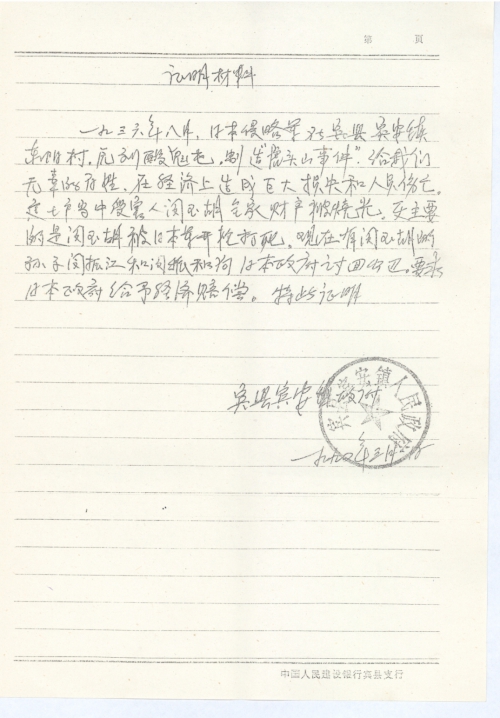 第 頁
证明材料
一九三六年八月，日本侵略军在宾县宾安镇
村，制造"山事件"给我们
无辜的百姓，在经济上造成巨大损失和人员伤亡。
这其中受害人闵玉胡全家财产被烧光，更主要
的是闵玉胡被日本军开枪打死，现在有闵玉胡的
孙子闵振江和闵振和向日本政府讨回公道，要求
日本政府给予经济赔偿。特此证明
宾县宾安镇政府
宾县宾安镇人民政府
一九九年三月日
中国人民建设银行宾县支行